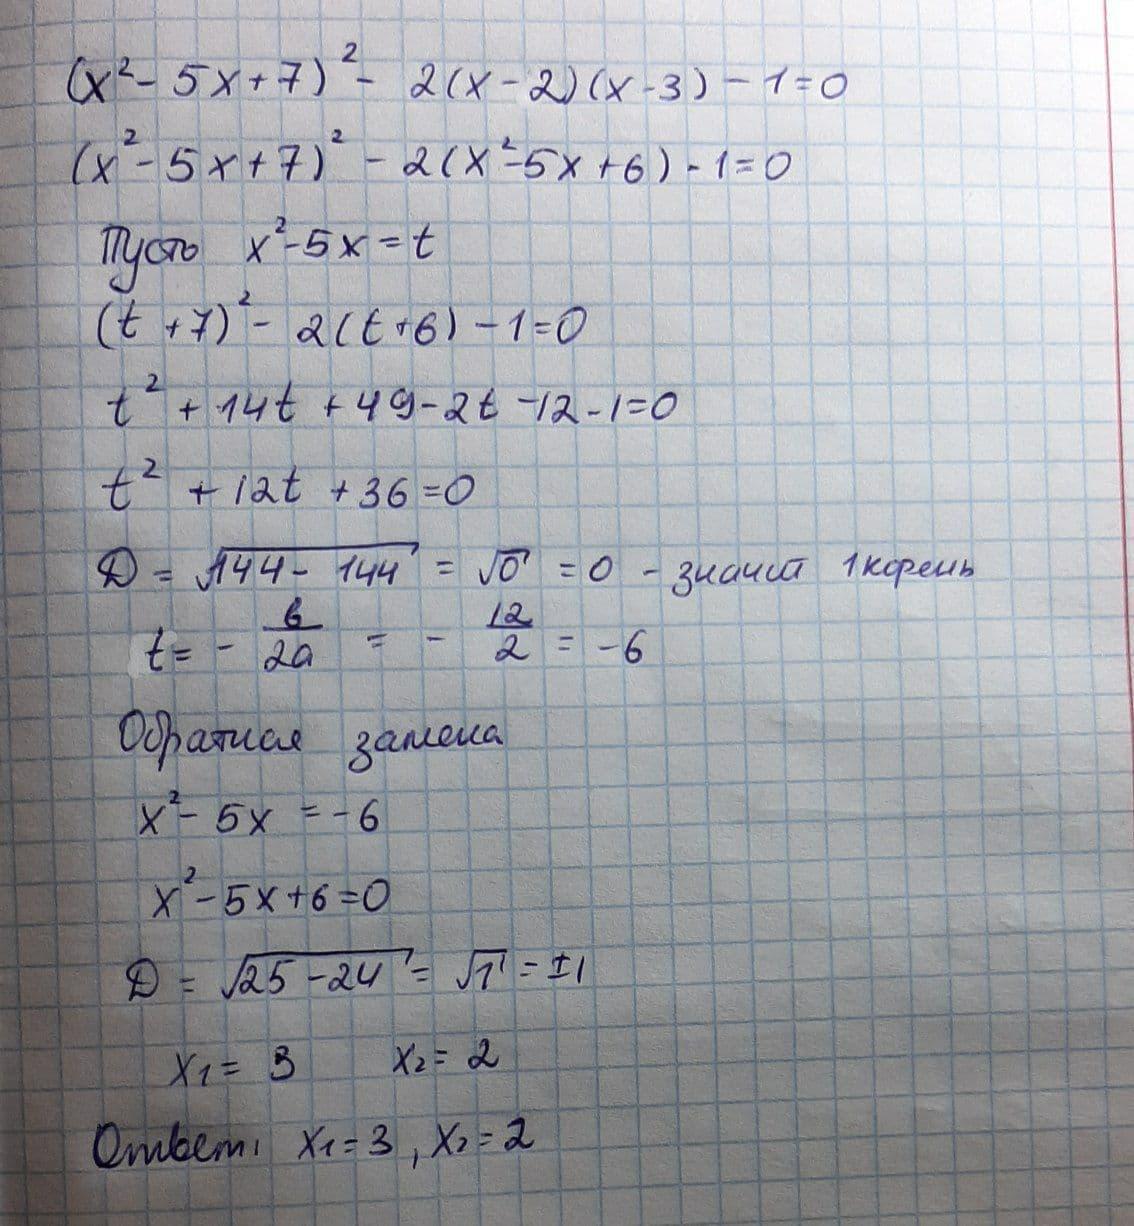 (x² - 5x + 7)² - 2(x - 2)(x - 3) - 1 = 0
(x² - 5x + 7)² - 2(x² - 5x + 6) - 1 = 0
Пусть x² - 5x = t
(t + 7)² - 2(t + 6) - 1 = 0
t² + 14t + 49 - 2t - 12 - 1 = 0
t² + 12t + 36 = 0
D = √144 - 144 = √0 = 0 - значит 1 корень
t = - b/2a = - 12/2 = -6
Обратная замена
x² - 5x = -6
x² - 5x + 6 = 0
D = √25 - 24 = √1 = ±1
x₁ = 3 x₂ = 2
Ответ: x₁ = 3, x₂ = 2